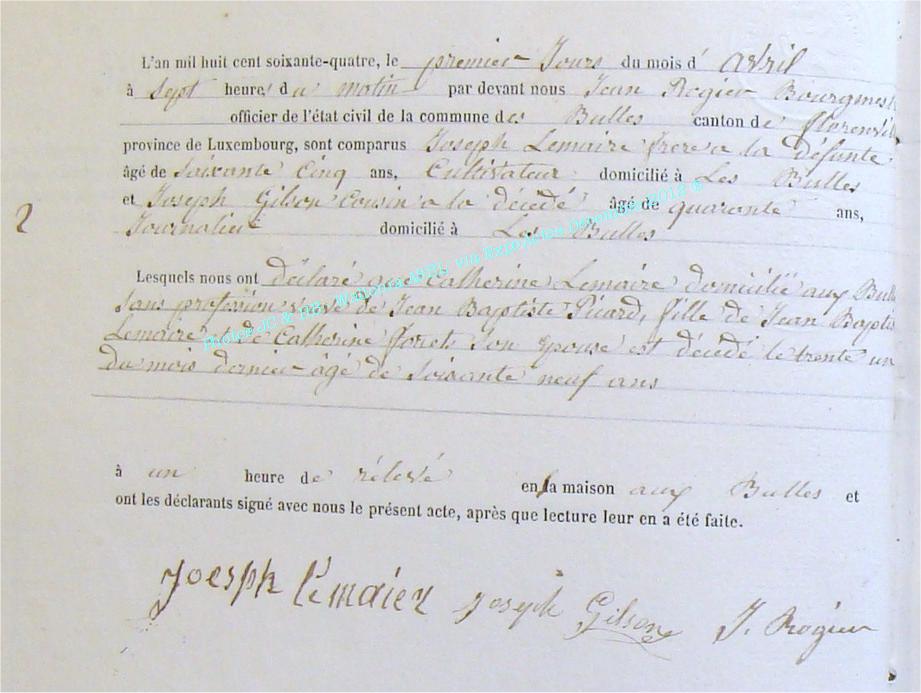 L'an mil huit cent soixante-quatre, le premier Jours du mois d' avril
à sept heures du matin par devant nous Jean Rogier Bourgmest
officier de l'état civil de la commune des Bulles canton de florenvil
province de Luxembourg, sont comparus Joseph Lemaire frère a la défunte
âgé de Soixante Cinq ans, Cultivateur domicilié à Les Bulles
et Joseph Gilson Cousin a la décédé âgé de quarante ans,
2
Journalier domicilié à Les Bulles
Lesquels nous ont déclaré que Catherine Lemaire domicilié aux Bull
Sans profession veuve de Jean Baptiste Picard, fille de Jean Baptis
Lemaire et de Catherine forêt Son épouse est décédé le trente un
du mois dernier âgé de Soixante neuf ans
à un heure de rélevé en la maison aux Bulles et
ont les déclarants signé avec nous le présent acte, après que lecture leur en a été faite.
Joesph l'emaier Joseph Gilson J. Rogier